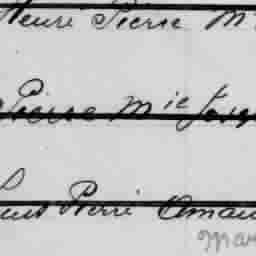 Henri Pierre M
Pierre Mie Josep
Louis Pierre Aman
Mar